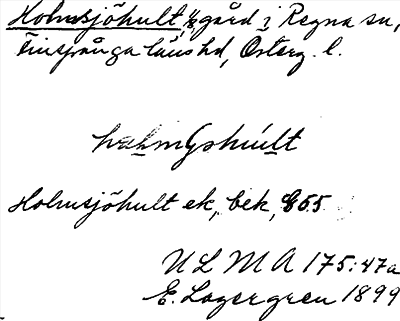 Holmsjöhult, gård i Regna sn,
Finspånga läns hd, Österg. l.
Holmsjöhult ek, bek,
U L M A 175:47a
E. Lagergren 1899